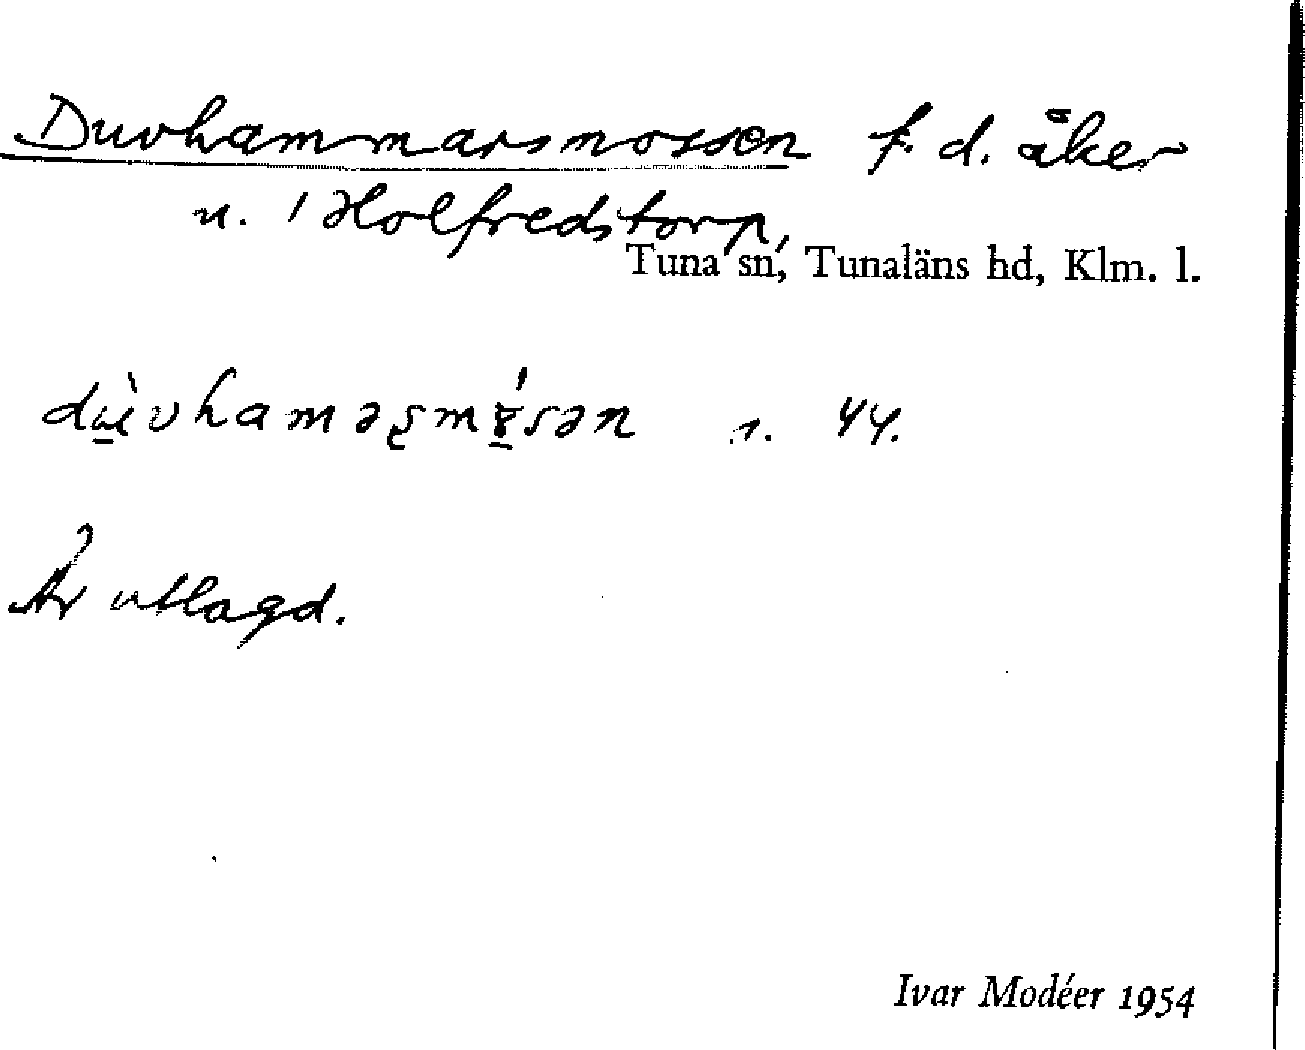 Duvhammarsmossen f. d. åker
u. 1 Holfredstorp,
Tuna sn, Tunaläns hd, Klm. l.
44.
Är utlagd.
Ivar Modéer 1954